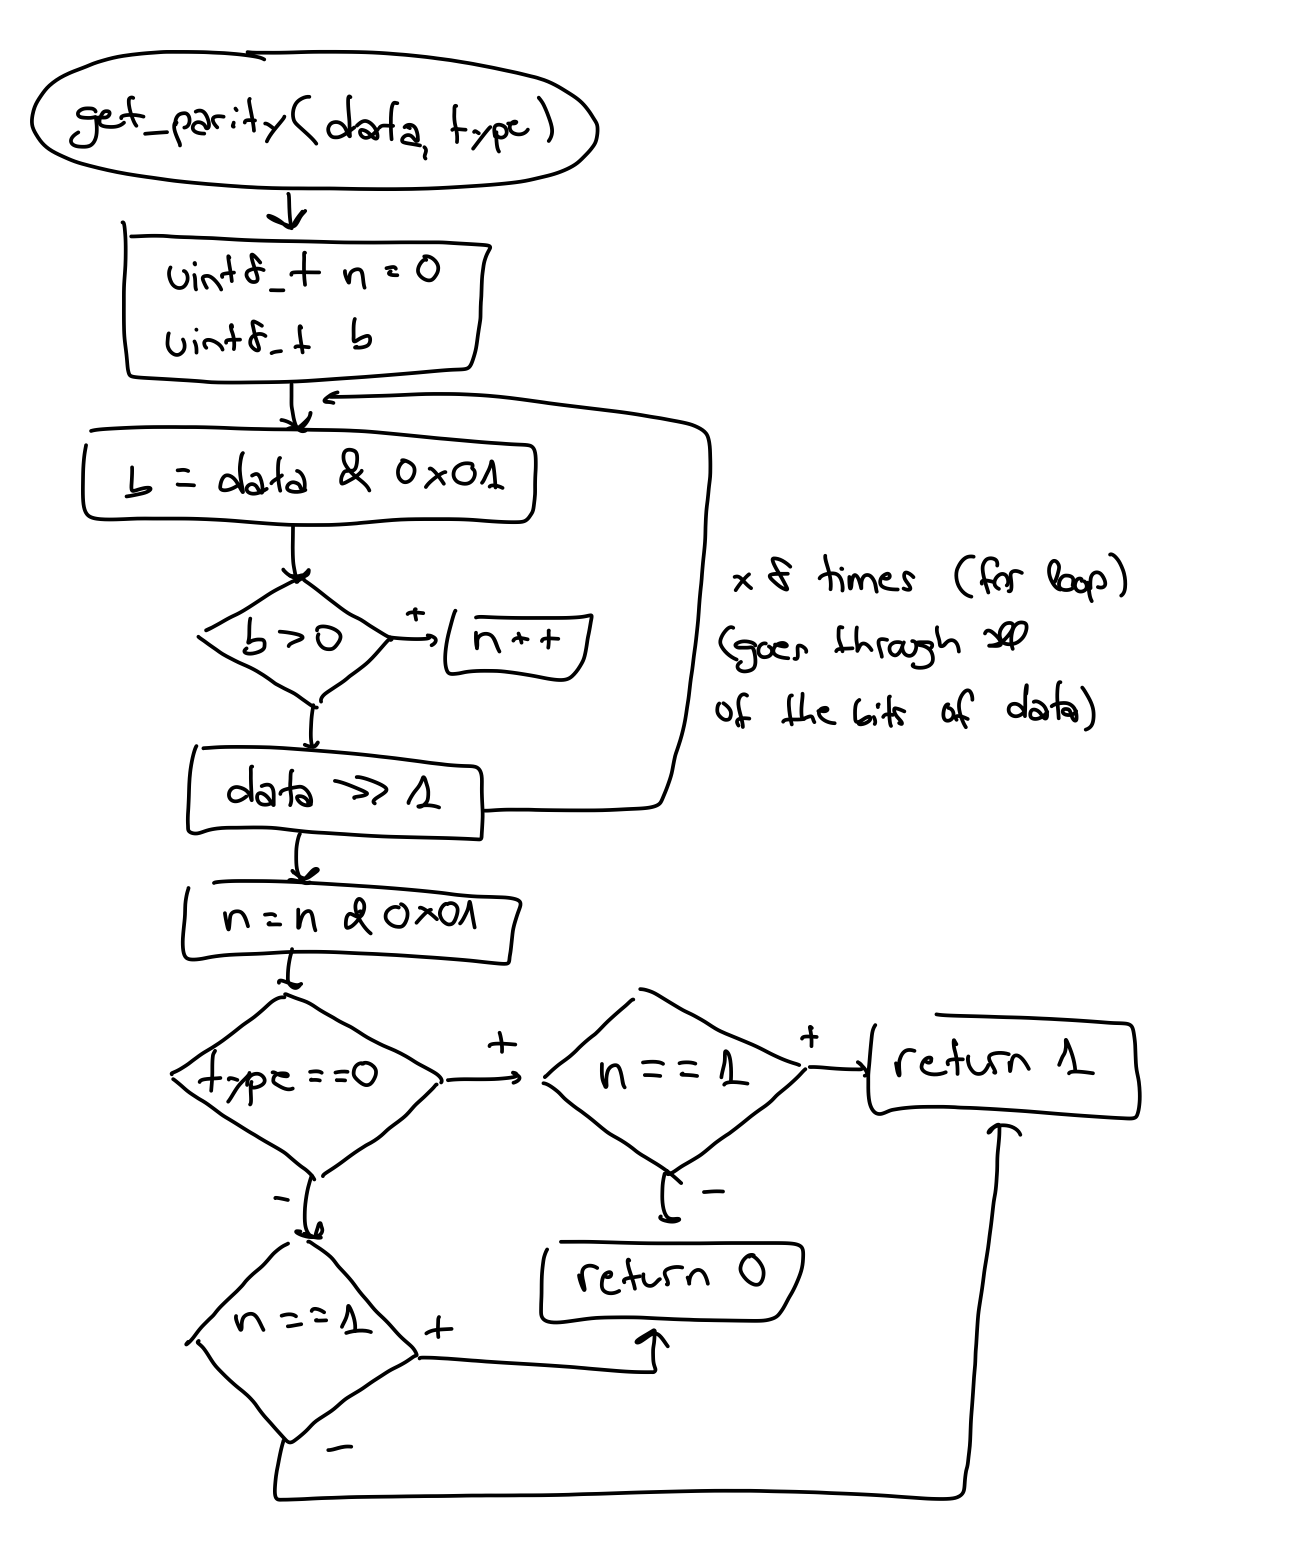 get_parity(data, type)
uint8_t n = 0
uint8_t b
b = data & 0x01
b > 0
+
n++
x 8 times (for loop)
(goes through all
of the bits of data)
data >> 1
n = n & 0x01
type==0
+
n == 1
+
return 1
-
-
return 0
n == 1
+
-